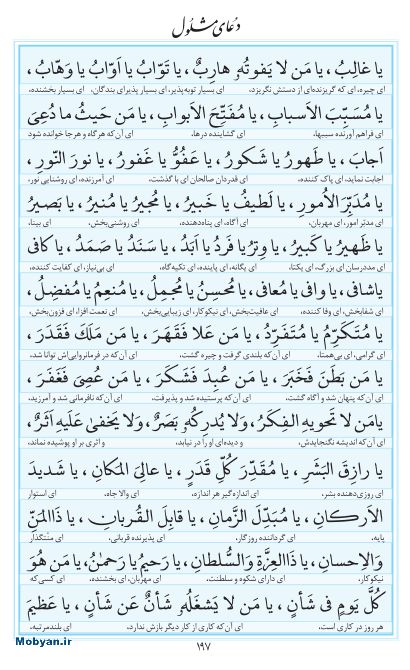 دعای مشلول
یا غالِبُ ، یا مَن لا یَفوتُهُ هارِبٌ، یا تَوّابُ یا اَوّابُ یا وَهّابُ ،
ای چیره، ای که گریزنده‌ای از دستش نگریزد، ای بسیار توبه‌پذیر، ای بسیار پذیرای بندگان، ای بسیار بخشنده،
یا مُسَبِّبَ الاَسبابِ ، یا مُفَتِّحَ الاَبوابِ ، یا مَن حَیثُ ما دُعِیَ
ای فراهم آورنده سببها، ای گشاینده درها، ای آن‌که هر گاه و هر جا خوانده شود
اَجابَ ، یا طَهورُ یا شَکورُ ، یا عَفُوُّ یا غَفورُ ، یا نورَ النّورِ ،
اجابت نماید، ای پاک کننده، ای قدردان صالحان ای با گذشت، ای آمرزنده، ای روشنایی نور،
یا مُدَبِّرَ الاُمورِ ، یا لَطیفُ یا خَبیرُ ، یا مُجیرُ یا مُنیرُ ، یا بَصیرُ
ای مدبّر امور، ای مهربان، ای آگاه، ای پناه‌دهنده، ای روشنی‌بخش، ای بینا،
یا ظَهیرُ یا کَبیرُ ، یا وِترُ یا فَردُ یا اَبَدُ ، یا سَنَدُ یا صَمَدُ ، یا کافی
ای مددرسان ای بزرگ، ای یکتا، ای یگانه، ای پاینده، ای تکیه‌گاه، ای بی‌نیاز، ای کفایت کننده،
یا شافی ، یا وافی یا مُعافی، یا مُحسِنُ یا مُجمِلُ، یا مُنعِمُ یا مُفضِلُ،
ای شفابخش، ای وفا کننده، ای عافیت‌بخش، ای نیکوکار، ای زیبایی‌بخش، ای نعمت افزا، ای فزون‌بخش،
یا مُتَکَرِّمُ یا مُتَفَرِّدُ، یا مَن عَلا فَقَهَرَ ، یا مَن مَلَکَ فَقَدَرَ ،
ای گرامی، ای بی‌همتا، ای آن‌که بلندی گرفت و چیره گشت، ای آن‌که در فرمانروایی‌اش توانا شد،
یا مَن بَطَنَ فَخَبَرَ ، یا مَن عُبِدَ فَشَکَرَ ، یا مَن عُصِیَ فَغَفَرَ ،
ای آن‌که پنهان شد و آگاه گشت، ای آن‌که پرستیده شد و پذیرفت، ای آن‌که نافرمانی شد و آمرزید،
یا مَن لا تَحویهِ الفِکَرُ ، وَلا یُدرِکُهُ بَصَرٌ، وَلا یَخفیٰ عَلَیهِ اَثَرٌ،
ای آن‌که اندیشه نگنجایدش، و دیده‌ای او را در نیابد، و اثری بر او پوشیده نماند،
یا رازِقَ البَشَرِ ، یا مُقَدِّرَ کُلِّ قَدَرٍ ، یا عالِیَ المَکانِ ، یا شَدیدَ
ای روزی‌دهنده بشر، ای اندازه‌گیر هر اندازه، ای والا جاه، ای استوار
الاَرکانِ ، یا مُبَدِّلَ الزَّمانِ ، یا قابِلَ القُربانِ ، یا ذَا المَنِّ
پایه، ای گرداننده روزگار، ای پذیرنده قربانی، ای منّتگذار
وَالاِحسانِ ، یا ذَا العِزَّةِ وَالسُّلطانِ ، یا رَحیمُ یا رَحمٰنُ، یا مَن هُوَ
نیکوکار، ای دارای شکوه و سلطنت، ای مهربان، ای بخشنده، ای کسی‌که
کُلَّ یَومٍ فی شَأنٍ ، یا مَن لا یَشغَلُهُ شَأنٌ عَن شَأنٍ ، یا عَظیمَ
هر روز در کاری است، ای آن‌که کاری از کار دیگر بازش ندارد، ای بلندمرتبه،
Mobyan.ir
۱۹۷